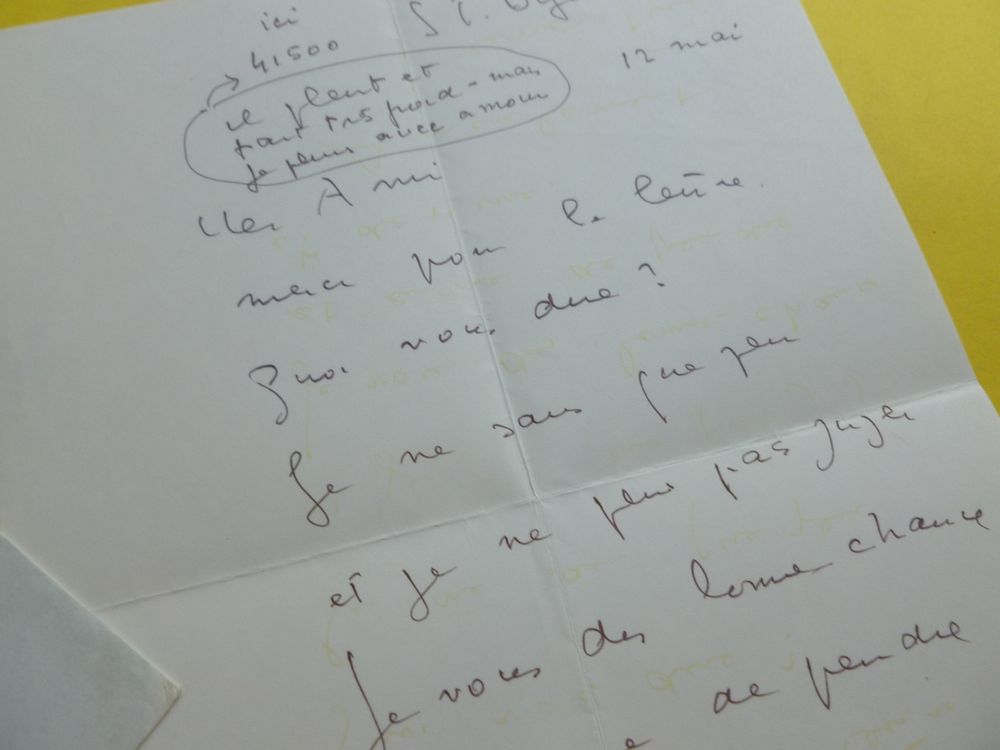 ici
41500
12 mai
il pleut et
fait très froid - mais
je peins avec amour
Cher Ami
merci pour la lettre.
Quoi vous dire ?
Je ne sais que peu
et je ne peux pas juger
Je vous dis bonne chance
de peindre